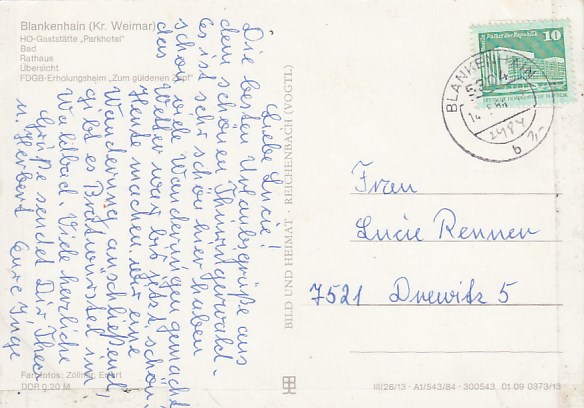 Blankenhain (Kr. Weimar)
HO-Gaststätte „Parkhotel"
Bad
Rathaus
Übersicht
FDGB-Erholungsheim „Zum güldenen Zopf"
Liebe Lucie!
Die besten Urlaubsgrüße aus
dem schönen Thüringerwald.
Es ist sehr schön hier haben
schon viele Wanderungen gemacht
das Wetter war bis jetzt schön.
Heute machen wir eine
Wanderung anschließend
gibt es Bratwürstel im
Waldbad. Viele herzliche
Grüße sendet Dir Theo
u. Herbert Eure Inge
Farbfotos: Zöllner, Erfurt
DDR 0,20 M.
BILD UND HEIMAT · REICHENBACH (VOGTL)
Palast der Republik 10
BLANKENHAIN
5304
b
Frau
Lucie Renner
7521 Drewitz 5
III/26/13 · A1/543/84 · 300543 01 09 0373/13